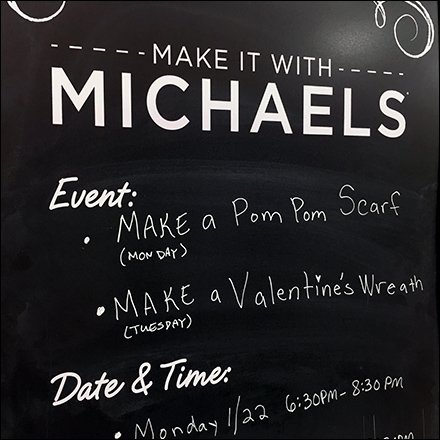 MAKE IT WITH
MICHAELS
Event:
• MAKE a Pom Pom Scarf
(MONDAY)
• MAKE a Valentine's Wreath
(TUESDAY)
Date & Time:
• Monday 1/22 6:30PM-8:30PM